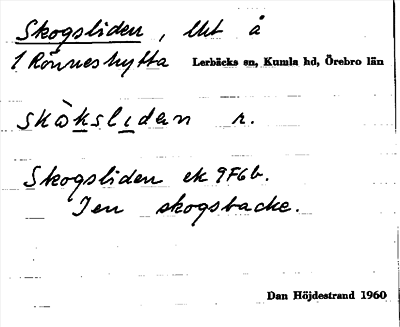 Skogsliden, lht å
1 Rönneshytta Lerbäcks sn, Kumla hd, Örebro län
skògsliden n.
Skogsliden ek 9F6b.
I en skogsbacke.
Dan Höjdestrand 1960